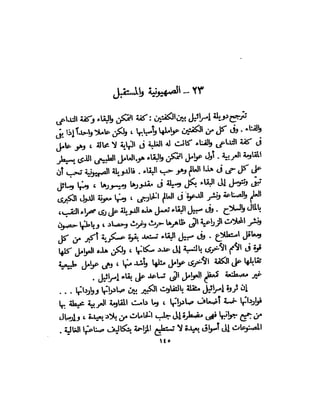 ٢٣ – الصهيونية والمستقبل
تترجح دويلة إسرائيل بين الكفتين : كفة التمكن والبقاء وكفة التداعى
والفناء . وفى كل من الكفتين عواملها وأسبابها ، ولكن عاملا واحداً إذا بقى
فى كفة التداعى والفناء كانت له الغلبة فى النهاية لا محالة ، وهو عامل
المقاومة العربية . أول عوامل التمكن والبقاء هو العامل الطبيعى الذى يسيطر
على كل حى فى هذا العالم وهو حب البقاء . فالدويلة الصهيونية تحب أن
تبقى وتتوسل إلى البقاء بكل وسيلة فى مقدورها وميسورها ، ومنها وسائل
العلم والصناعة ونشر الدعوة فى العالم الخارجى ، ومنها معونة الدول الكبرى
بالمال والسلاح . وفى سبيل البقاء تعمل هذه الدويلة على رى صحراء النقب ،
ونشر المحلات الزراعية التى ظاهرها حرث وغرث وحصاد ، وباطنها حصون
ومعاقل استطلاع . وفى سبيل البقاء تستعد بقوة عسكرية أكبر من كل
قوة فى الأمم الأخرى بالنسبة إلى عدد سكانها ، ولكن هذه العوامل كلها
تقابلها على الكفة الأخرى عوامل مثلها وأشد منها ، وهى عوامل طبيعية
غير مصطنعة كمعظم العوامل التى تساعد على بقاء إسرائيل .
إن ثروة إسرائيل مثقلة بالتفاوت الكبير بين صادراتها ووارداتها . . .
فوارداتها خمسة أضعاف صادراتها ، وما دامت المقاومة العربية محيطة بها
من جميع جوانبها فهى مضطرة إلى جلب الخامات من بلاد بعيدة ، وإرسال
المصنوعات إلى أسواق بعيدة لا تستطيع المزاحمة بتكاليف صناعتها الغالية .
١٤٥